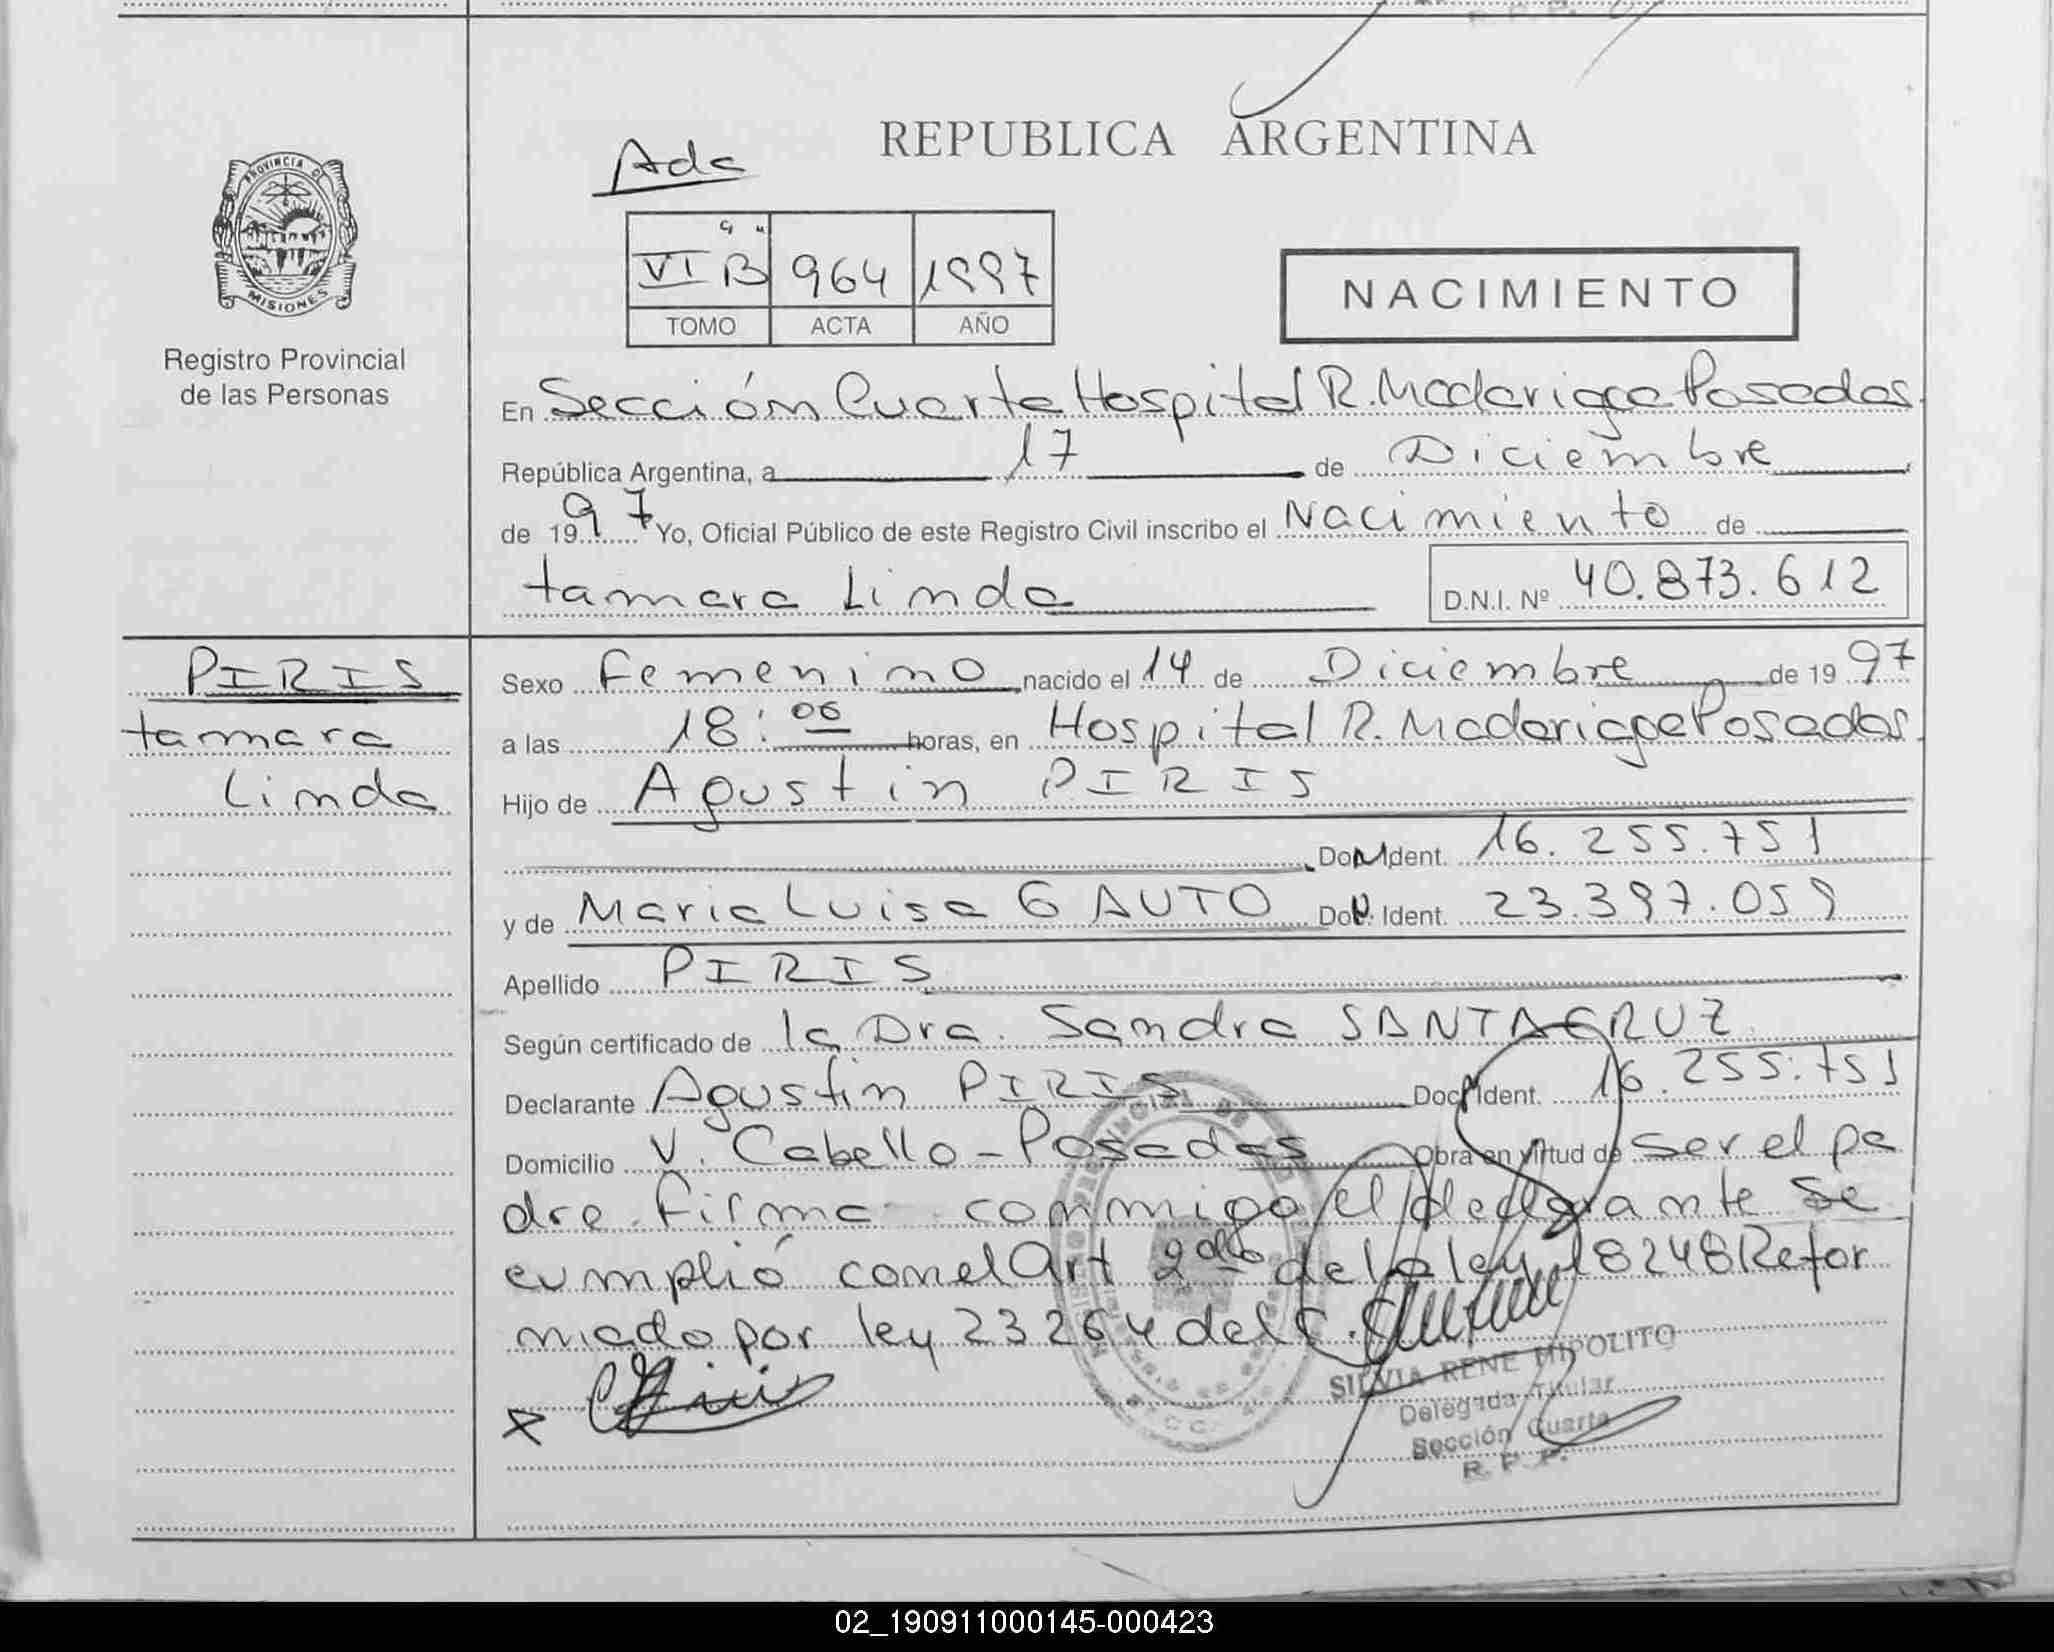 R. P. P.
REPUBLICA ARGENTINA
Ada
PROVINCIA DE
MISIONES
Registro Provincial
de las Personas
VI "B" 964 1997
TOMO ACTA AÑO
NACIMIENTO
En Sección Cuarta Hospital R. Madariaga Posadas
República Argentina, a 17 de Diciembre
de 1997 Yo, Oficial Público de este Registro Civil inscribo el Nacimiento de
tamara Linda D.N.I. Nº 40.873.612
PIRIS
tamara
Linda
Sexo Femenino nacido el 14 de Diciembre de 1997
a las 18:06 horas, en Hospital R. Madariaga Posadas
Hijo de Agustin PIRIS
Ident. 16.255.751
y de Maria Luisa GAUTO Ident. 23.397.059
Apellido PIRIS
Según certificado de la Dra. Sandra SANTACRUZ
Declarante Agustin PIRIS Doc Ident. 16.255.751
Domicilio V. Cabello - Posadas Obra en virtud de ser el pa
dre. Firma conmigo el declarante se
cumplió con el Art 2do de la ley 18248 Refor
mado por ley 23264 del C.C.
x
SILVIA RENE HIPOLITO
Delegada Titular
Sección Cuarta
R. P. P.
02_190911000145-000423